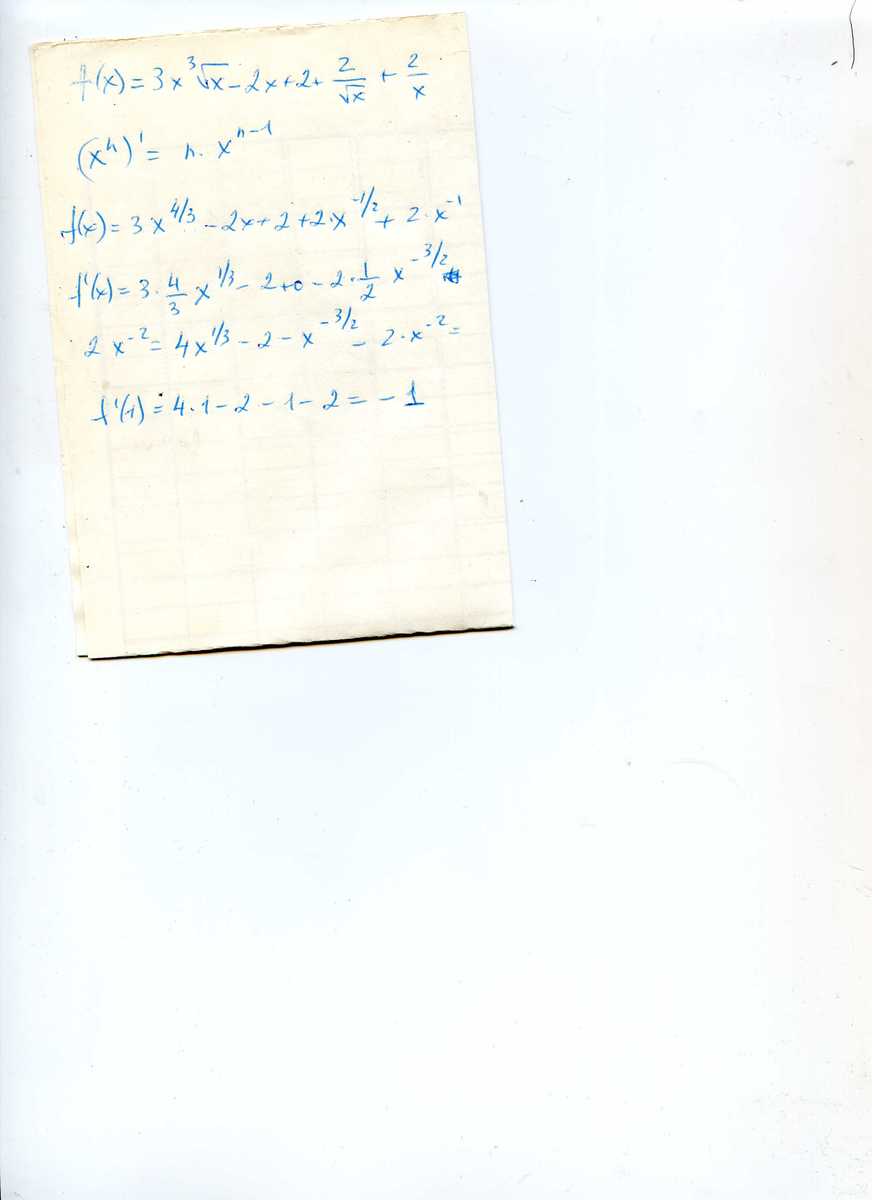 f(x) = 3x ³√x - 2x + 2 + 2/√x + 2/x
(xⁿ)' = n · xⁿ⁻¹
f(x) = 3 · x^4/3 - 2x + 2 + 2 · x^-1/2 + 2 · x^-1
f'(x) = 3 · 4/3 x^1/3 - 2 + 0 - 2 · 1/2 x^-3/2
2 x^-2 = 4x^1/3 - 2 - x^-3/2 - 2 · x^-2 =
f'(1) = 4 · 1 - 2 - 1 - 2 = - 1